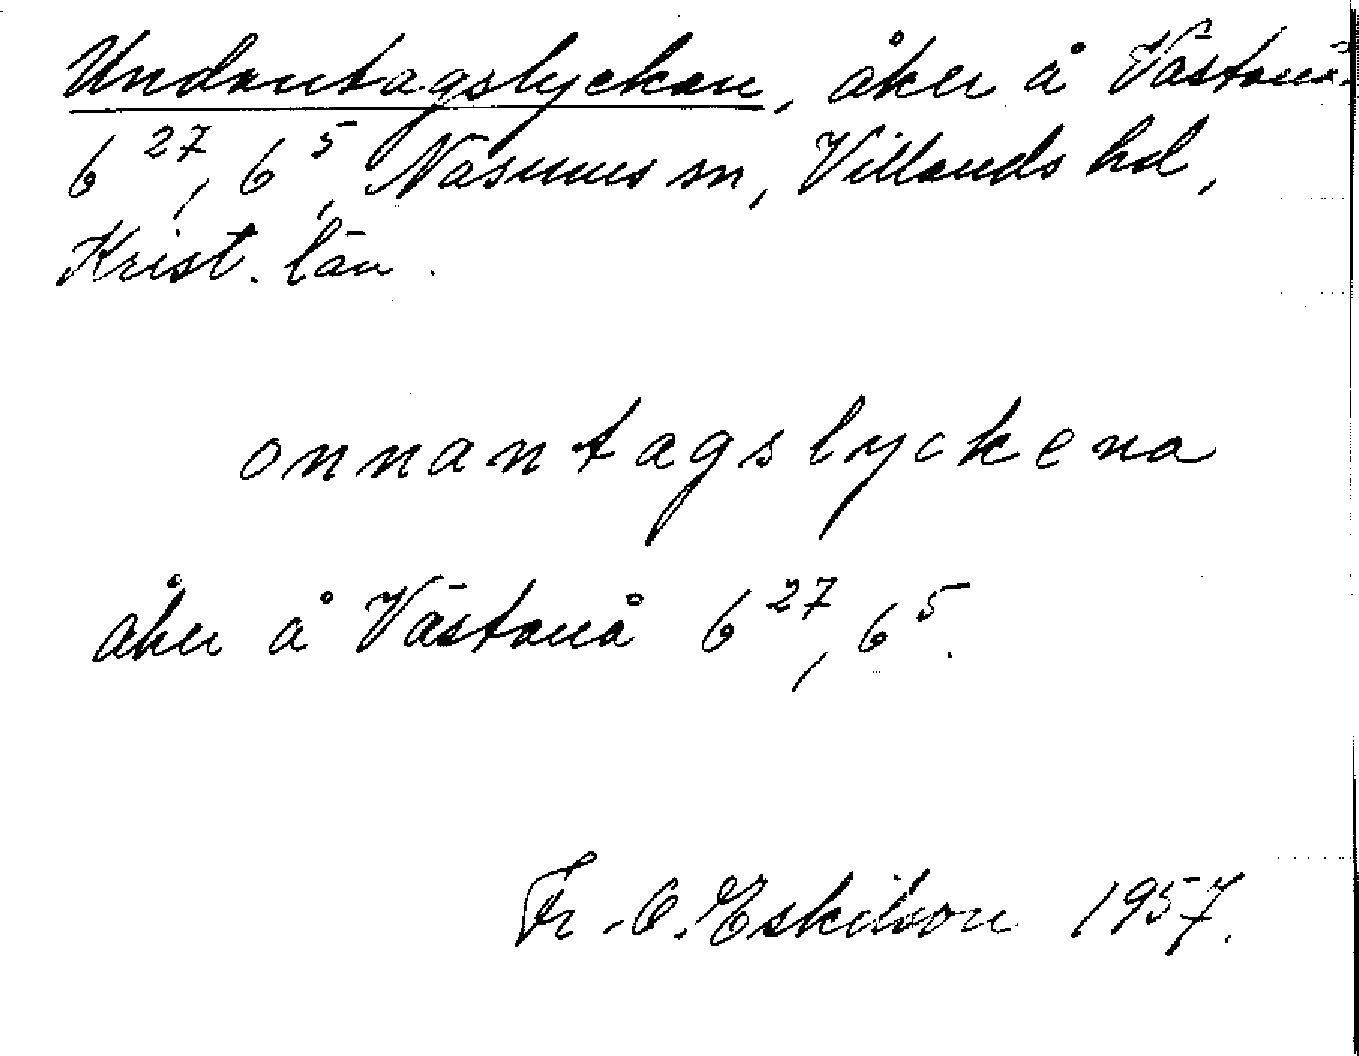 Undantagslyckan, åker å Västanå
6²⁷, 6⁵, Näsums sn, Villands hd,
Krist. län.
onnantagslyckena
åker å Västanå 6²⁷, 6⁵.
Fr. O. Eskilson 1957.